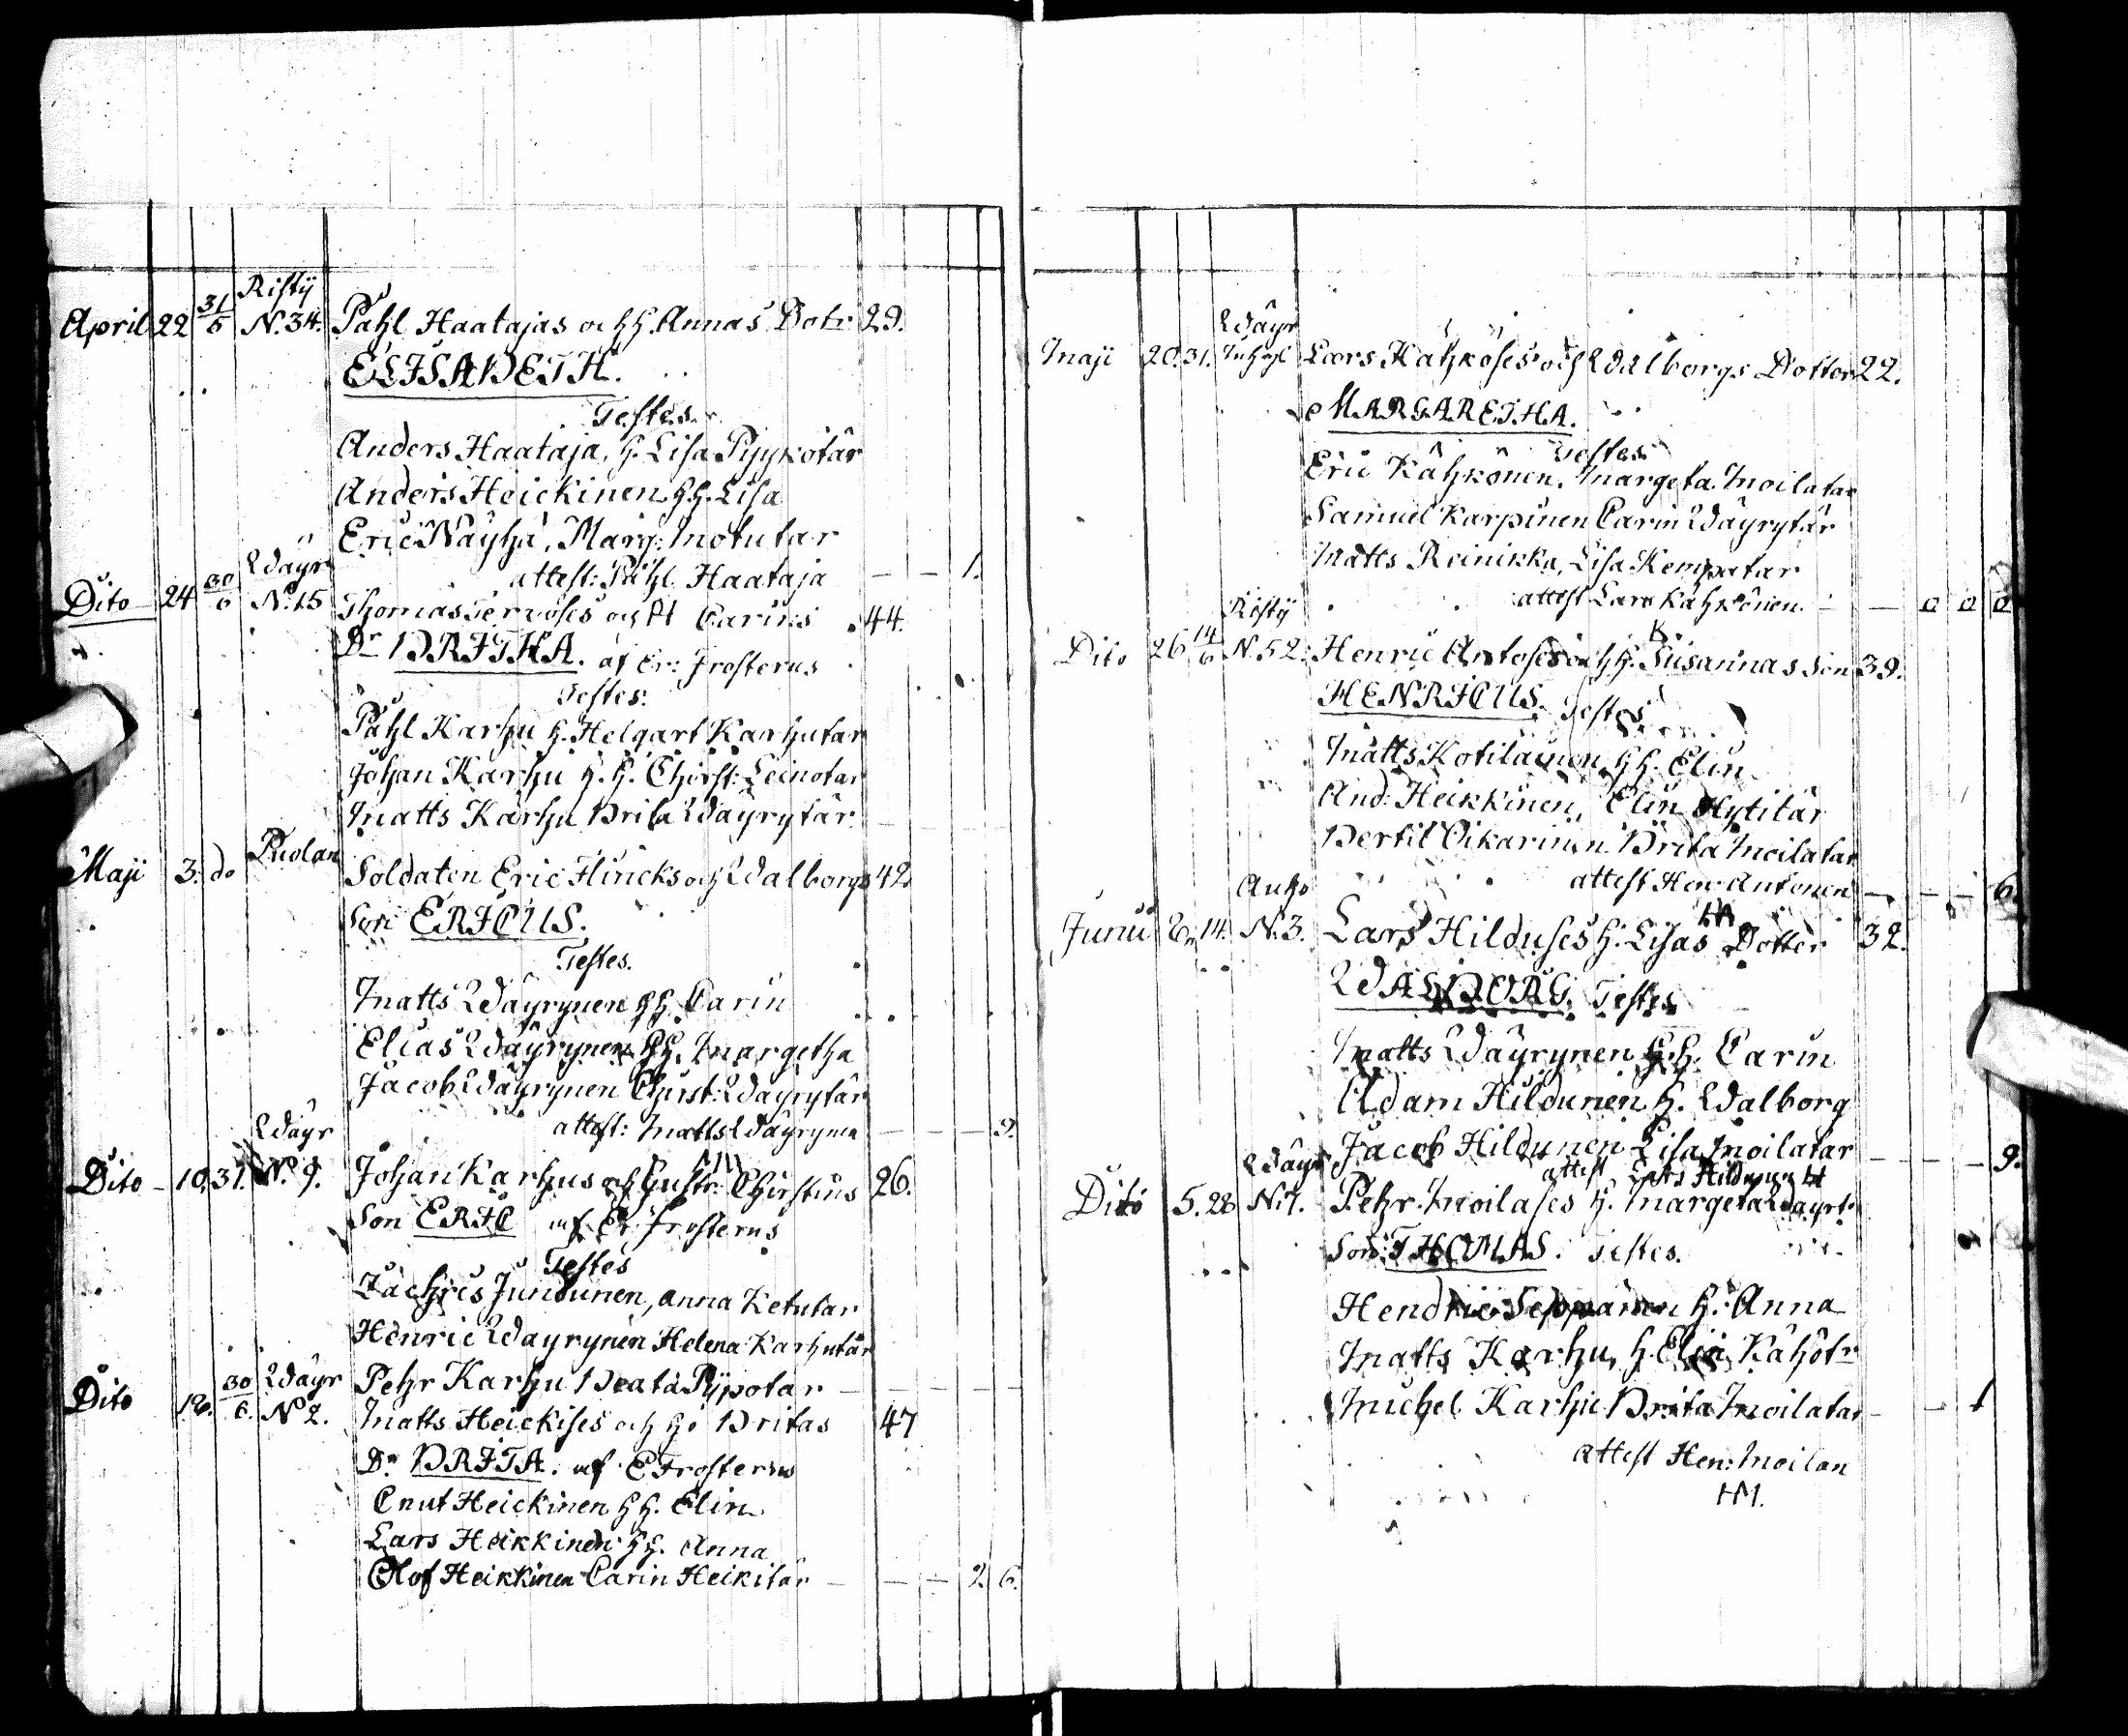 Ristÿ
April 22 31/5 N. 34. Påhl Haatajas och h. H. Annas Dotr 29.
ELISABETH.
Testes.
Anders Haataja, H. Lisa Pyykötär
Anders Heickinen h H. Lisa
Eric Näyhä, Marg: Motutar
attest: Påhl Haataja — — 1.
Wäyr
Dito 24 30/6 N. 15 Thomas Tervoses och H Carins 44.
Dr BRITHA. af Er: Frosterus
Testes:
Påhl Karhu h. Helgart Karhutar
Johan Karhu h. H. Christ: Leinotar
Matts Karhu Brita Wäyrytär
Puolan
Maji 3. do Soldaten Eric Hincks och Walborgs 42
Son ERICUS.
Testes.
Matts Wäyrynen h H. Carin
Elias Wäyrynen h H. Margetha
Jacob Wäyrynen Christ: Wäyrytär
attest: Matts Wäyrynen — — — 9.
Wäyr
Dito 10. 31. N. 9. Johan Karhus och Hustr: Christins 26.
Son ERIC af Er. Frosterus
Testes
Zachris Juntunen, Anna Ketutar
Henric Wäyrynen Helena Karhutar
Pehr Karhu Beata Pÿpotar — — — —
Wäyr
Dito 18. 30/6. N 2. Matts Heickises och ho Britas 47
Dr BRITA. af E Frosterus
Cnut Heickinen h H. Elin
Lars Heikkinen h H. Anna
Olof Heikkinen Carin Heikitar — — — 2. 6.
Wäyr
Maji 20. 31. Lars Kähköses och Walborgs Dotter 22.
MARGARETHA.
Testes
Eric Kähkönen. Margeta Moilatar
Samuel Karpinen Carin Wäyrytär
Matts Reinikka, Lisa Kempatar
attest Lars Kähkönen — —
Ristÿ
Dito 26 14/6 N. 52. Henric Antoses och h H. Susannas Son 39.
HENRICUS. Testes
Matts Kotilainen h H. Elin
And: Heikkinen, Elin Hytitär
Bertil Oikarinen Brita Moilatar
attest Hen: Antonen — — — 6.
Auho
Junii 2. 14. N. 3. Lars Hilduses h. Lisas Dotter 32.
WALBORG. Testes
Matts Wäyrynen h. H. Carin
Adam Hildunen h. Walborg
Jacob Hildunen Lisa Moilatar — — — 9.
attest Lars Hildunen
Wäyr
Dito 5. 28 N. 7. Pehr Moilases h. Margeta Wäyrt:
Son: THOMAS. Testes.
Hendric Seppänen h. Anna
Matts Karhu, h. Elin Kähötr
Michel Karhu Brita Moilatar — — 1
attest Hen: Moilan
HM.